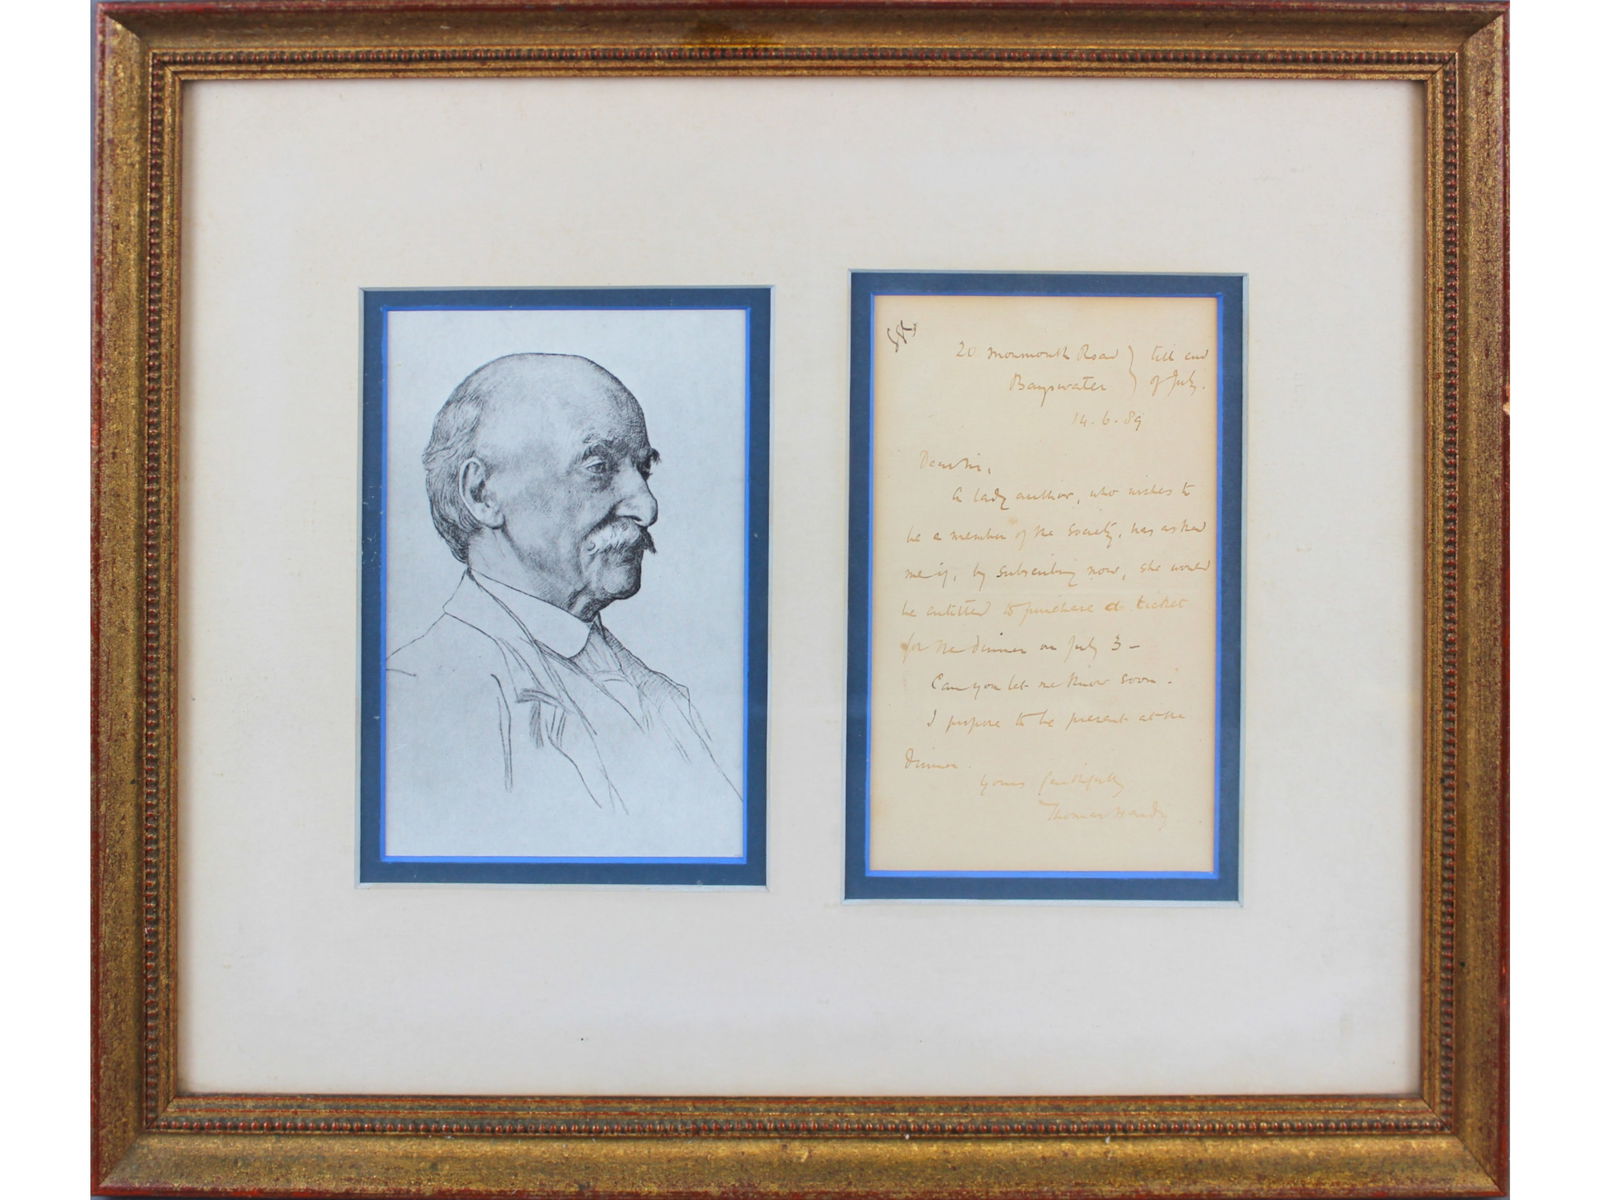 20 Monmouth Road } till end
Bayswater } of July.
14. 6. 89
Dear Sir,
A lady author, who wishes to
be a member of the Society, has asked
me if, by subscribing now, she would
be entitled to purchase a ticket
for the dinner on July 3 –
Can you let me know soon.
I propose to be present at the
dinner.
Yours faithfully
Thomas Hardy